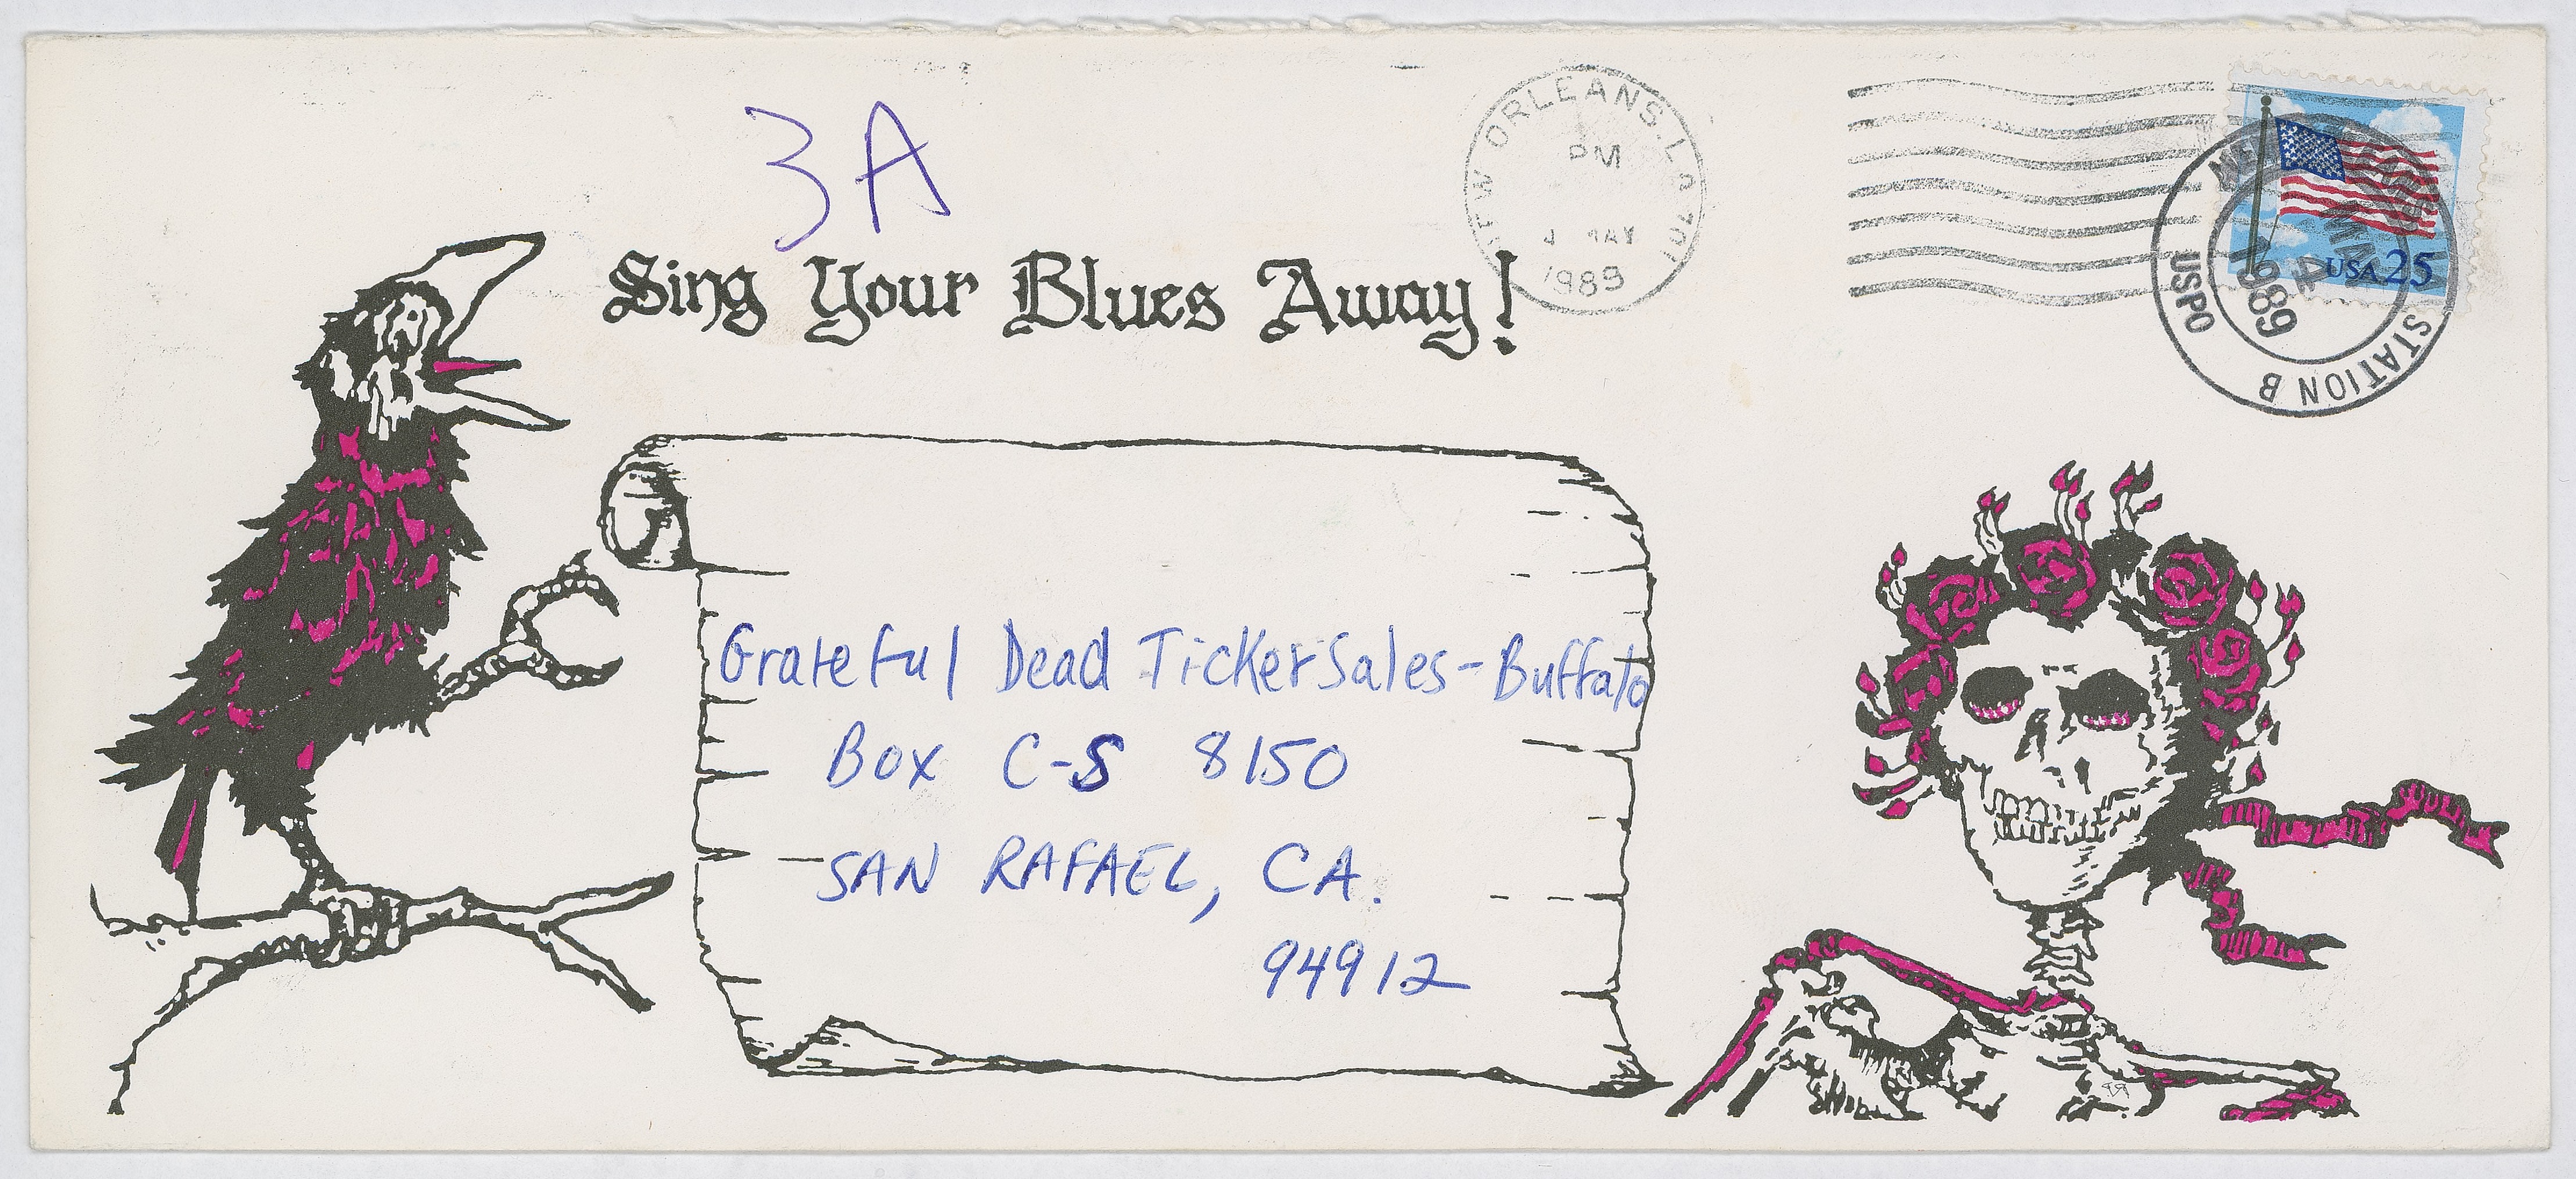 3A
NEW ORLEANS, LA 701
PM
4 MAY
1989
USA 25
4
1989
USPO
STATION B
Sing Your Blues Away!
Grateful Dead Ticket Sales-Buffalo
Box C-S 8150
SAN RAFAEL, CA.
94912